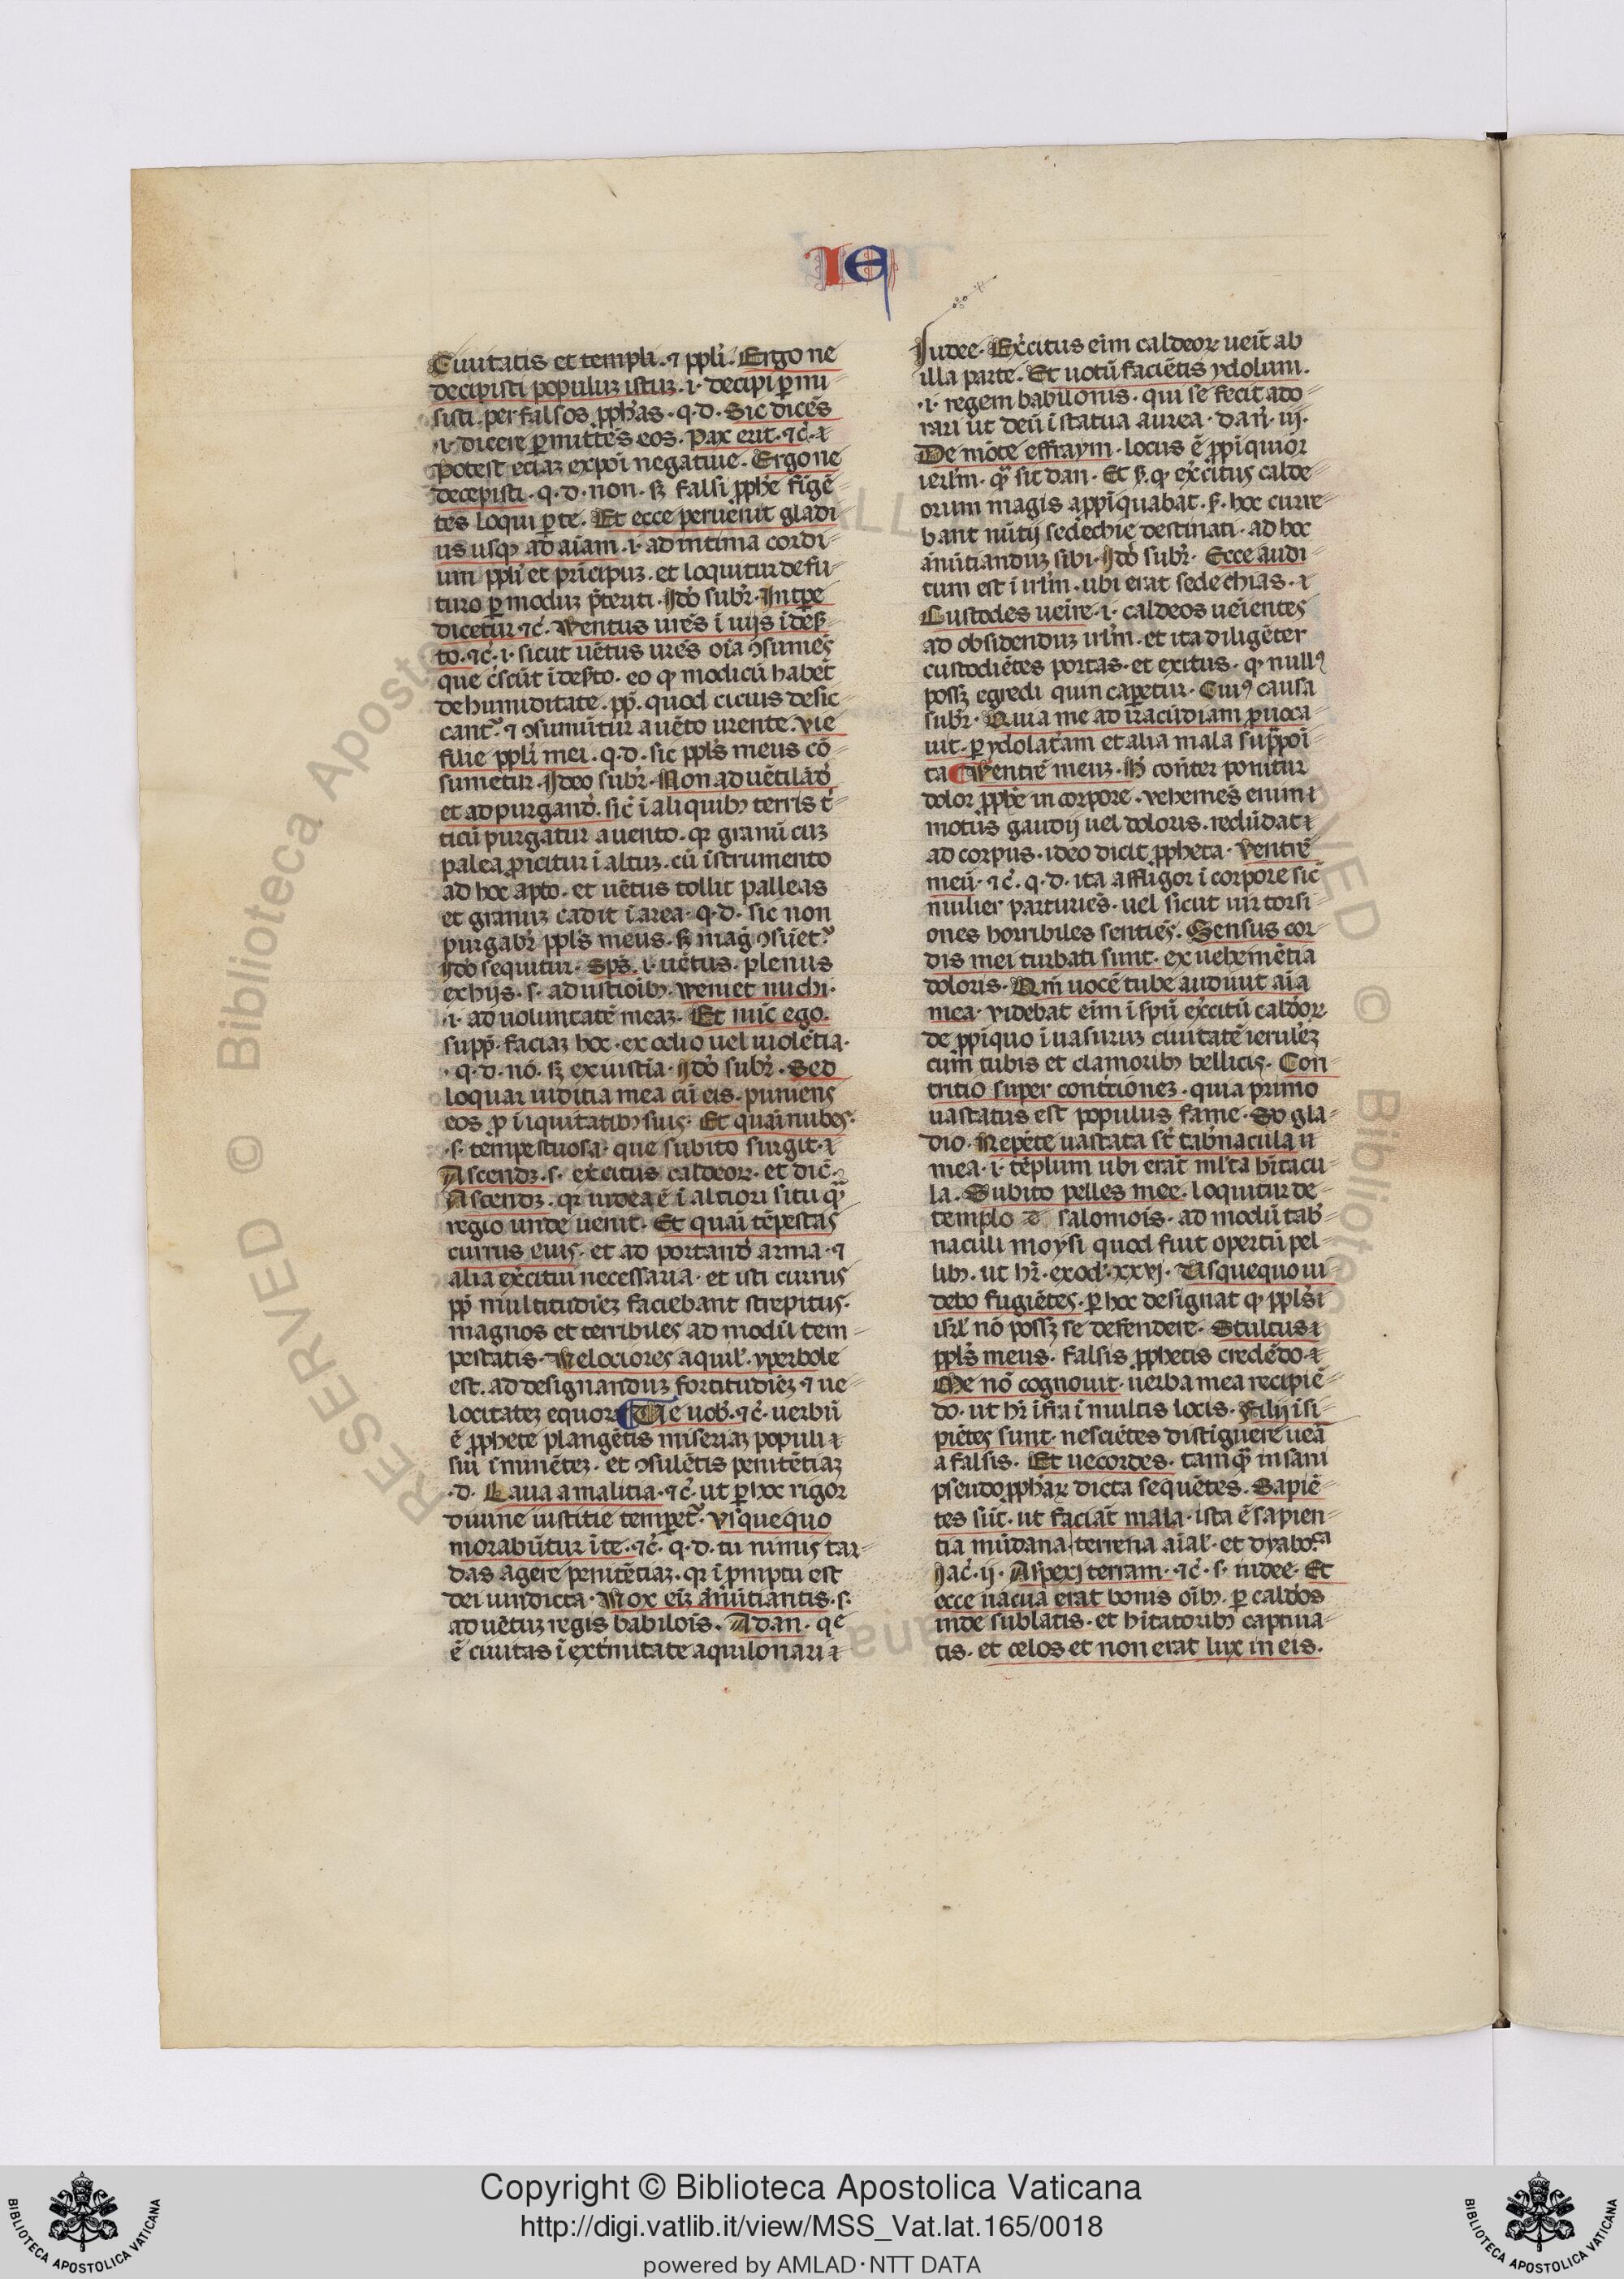 IE
Ciuitatis et templi. ⁊ ppli. Ergo ne
decipisti populuꝫ istuꝫ. i. decipi ꝑmi-
sisti. per falsos ꝓphas. q. d. Sic dicēs
.i. dicere ꝑmittēs eos. Pax erit. ⁊c̄. ⁊
Potest eciaꝫ expoī negatiue. Ergo ne
decepisti. q. d. non. sꝫ falsi ꝓphe fīgē-
tes loqui ꝑ te. Et ecce peruēnit gladi-
us usqꝫ ad aīam. i. ad intima cordi-
um ppli et pricipuꝫ. et loquitur de fu-
turo ꝑ moduꝫ p̄teriti. Ido subr̄. In tꝑe
dicetur ⁊c̄. Uentus urēs ī uijs ī deẜ-
to. ⁊c̄. i. sicut uētus urēs oīa ↄsumēs
que crescūt ī deẜto. eo qꝫ modicū habēt
de humiditate. pp̄. quod cicius desic-
cant᷑. ⁊ ↄsumūtur a uēto urente. Vie
filie ppli mei. q. d. sic ppls meus cō-
sumetur. Ideo subr̄. Non ad uētilād̄
et ad purgand̄. sic̄ ī aliquibꝫ terris t̄-
ticū purgatur a uento. qꝛ granū cuꝫ
palea ꝓicitur ī altuꝫ. cū īstrumento
ad hoc apto. et uētus tollit palleas
et granuꝫ cadit ī area. q. d. sic non
purgabr̄ ppls meus. sꝫ maḡ ↄsūet᷑
Ido sequitur. Sp̄s. i. uētus. plenus
ex hijs. s. adustioībꝫ. Ueniet michi.
.i. ad uoluntatē meaꝫ. Et nūc ego.
supp̄. faciaꝫ hoc. ex odio uel uiolētia.
.q. d. nō. sꝫ ex iustīa. Ido subr̄. Sed
loquar iuditia mea cū eis. puniens
eos ꝓ īiquitatibꝫ suis. Et quaī nubes.
.s. tempestuosa. que subito surgit. ⁊
Ascendꝫ. s. exc̄itus caldeoꝝ. et dic̄.
Ascendꝫ. qꝛ iudea ē ī altiori situ qͣꝫ
regio unde uenit. Et quaī tēpestas
currus eius. et ad portand̄ arma. ⁊
alia exc̄itui necessaria. et isti currus
pp̄ multitudīeꝫ faciebant strepitus.
magnos et terribiles ad modū tem-
pestatis. Uelociores aquil̄. yperbole
est. ad designanduꝫ fortitudīeꝫ ⁊ ue-
locitateꝫ equoꝝ ¶ Ue uob̄. ⁊c̄. uerbū
ē ꝓphete plangētis miseriaꝫ populi ⁊
sui īminēteꝫ. et ↄsulētis penitētiaꝫ
.d. Laua a malitia. ⁊c̄. ut ꝑ hoc rigor
diuine iustitie temꝑet᷑. Vsquequo
morabūtur ī te. ⁊c̄. q. d. tu nimis tar-
das agere penitētiaꝫ. qꝛ ī ꝓmptu est
dei uindicta. Uox eīꝫ anūtiantis. s.
ad uētuꝫ regis babilois. A dan. qe
ē ciuitas ī extīmitate aquilonari ⁊
Iudee. Exc̄itus eīm caldeoꝝ ueīt ab
illa parte. Et uotū faciētis ydolum.
.i. regem babilonis. qui se fecit ado-
rari ut deū ī statua aurea. dan̄. iij.
De mōte effraym. locus ē ꝓpīquior
ierlm̄. qͣꝫ sit dan. Et ẜ. qꝫ exc̄itus calde-
orum magis appīquabat. ẜ. hoc curre-
bant nūtij sedechie destinati. ad hoc
ānūtianduꝫ sibi. Ido subr̄. Ecce audi-
tum est ī irl̄m. ubi erat sedechias. ⁊
Custodes ueīre. i. caldeos ueīentes
ad obsidenduꝫ irl̄m. et ita diligēter
custodiētes portas. et exitus. qꝫ null᷒
possꝫ egredi quin caꝑetur. Cui᷒ causa
subr̄. Quia me ad iracūdiam ꝓuoca-
uit. ꝑ ydolatr̄am et alia mala sup̄poī-
ta ¶ Uentrē meuꝫ. H̄ con̄ter ponitur
dolor ꝓphe in corpore. vehemēs enim ⁊
motus gaudij uel doloris. redūdat ⁊
ad corpus. ideo dicit ꝓpheta. Ventrē
meū. ⁊c̄. q. d. ita affligor ī corpore sic̄
mulier parturiēs. uel sicut uir torsi-
ones horribiles sentiēs. Sensus cor-
dis mei turbati sunt. ex uehemētia
doloris. Qm̄ uocē tube audiuit aīa
mea. videbat eīm ī sp̄u exc̄itū caldoꝝ
de ꝓpīquo īuasuruꝫ ciuitatē ierul̄eꝫ
cum tubis et clamoribꝫ bellicis. Con-
tritio super contr̄ioneꝫ. quia primo
uastatus est populus fame. S̄o gla-
dio. Repēte uastata st̄ tab̄nacula
mea. i. tēplum ubi erāt ml̄ta hītacu-
la. Subito pelles mee. loquitur de-
templo salomōis. ad modū tab̄-
naculi moysi quod fuit opertū pel-
libꝫ. ut hr̄. exod̄. xxvj. Usquequo ui-
debo fugiētes. ꝑ hoc designat qꝫ ppls ⁊
isr̄l nō possꝫ se defendere. Stultus ⁊
ppls meus. falsis ꝓphetis credēdo. ⁊
Me nō cognouit. uerba mea recipiē-
do. ut hr̄ īfra ī multis locis. Filij īsi-
piētes sunt. nesciētes distīguere uera
a falsis. Et uecordes. tamqͣꝫ insani
pseudoꝓphaꝝ dicta sequētes. Sapiē-
tes sūt. ut faciāt mala. ista ē sapien-
tia mūdana terrena aīal̄. et dyabol̄ca
Iac̄. ij. Aspexj terram. ⁊c̄. s. iudee. Et
ecce uacua erat bonis oībꝫ. ꝑ caldos
inde sublatis. et hītatoribꝫ captiua-
tis. et celos et non erat lux in eis.
Copyright © Biblioteca Apostolica Vaticana
http://digi.vatlib.it/view/MSS_Vat.lat.165/0018
powered by AMLAD · NTT DATA